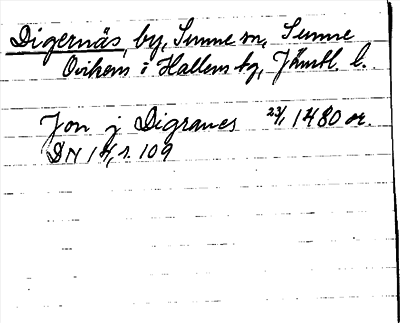 Digernäs, by, Sunne sn, Sunne
Ovikens o Hallens tg, Jämtl. l.
Jon j Digranes 23/1 1480 or.
DN 14, s. 109